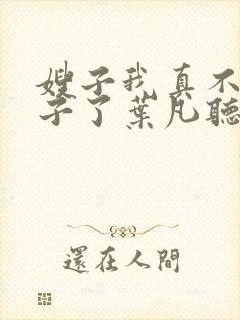 嫂子我真不
子了葉凡聽
還在人間